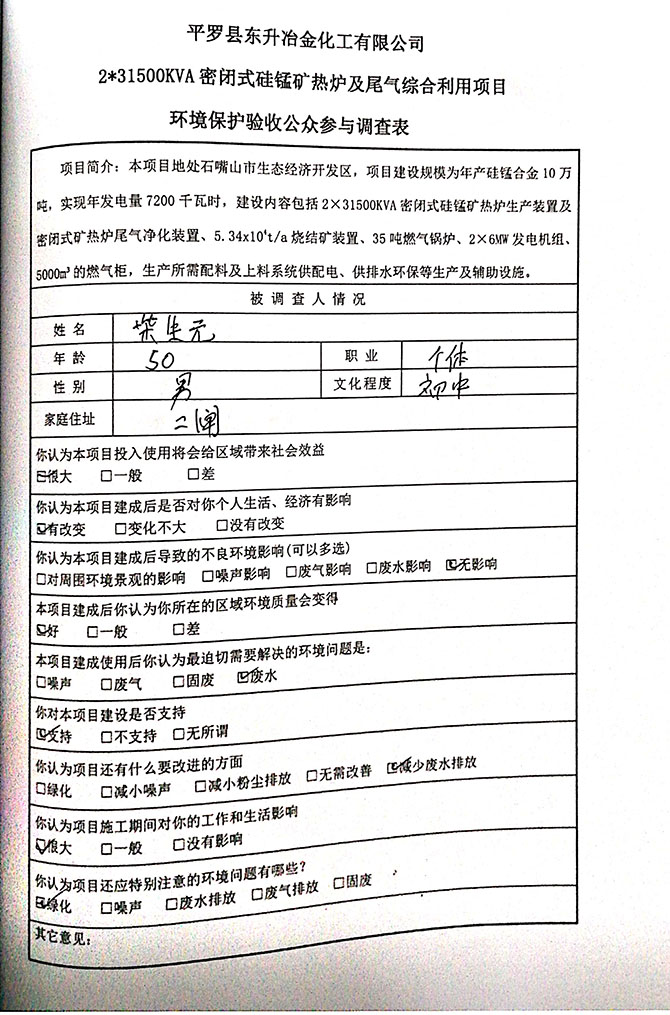 平罗县东升冶金化工有限公司
2*31500KVA 密闭式硅锰矿热炉及尾气综合利用项目
环境保护验收公众参与调查表
项目简介：本项目地处石嘴山市生态经济开发区，项目建设规模为年产硅锰合金 10 万
吨，实现年发电量 7200 千瓦时，建设内容包括 2×31500KVA 密闭式硅锰矿热炉生产装置及
密闭式矿热炉尾气净化装置、5.34x10⁴t/a 烧结矿装置、35 吨燃气锅炉、2×6MW 发电机组、
5000m³ 的燃气柜，生产所需配料及上料系统供配电、供排水环保等生产及辅助设施。
被 调 查 人 情 况
姓 名 生元
年 龄 50 职 业 个体
性 别 男 文化程度 初中
家庭住址 二闸
你认为本项目投入使用将会给区域带来社会效益
☑很大 □一般 □差
你认为本项目建成后是否对你个人生活、经济有影响
☑有改变 □变化不大 □没有改变
你认为本项目建成后导致的不良环境影响(可以多选)
□对周围环境景观的影响 □噪声影响 □废气影响 □废水影响 ☑无影响
本项目建成后你认为你所在的区域环境质量会变得
☑好 □一般 □差
本项目建成使用后你认为最迫切需要解决的环境问题是：
□噪声 □废气 □固废 ☑废水
你对本项目建设是否支持
☑支持 □不支持 □无所谓
你认为项目还有什么要改进的方面
□绿化 □减小噪声 □减小粉尘排放 □无需改善 ☑减少废水排放
你认为项目施工期间对你的工作和生活影响
☑很大 □一般 □没有影响
你认为项目还应特别注意的环境问题有哪些？
☑绿化 □噪声 □废水排放 □废气排放 □固废
其它意见：